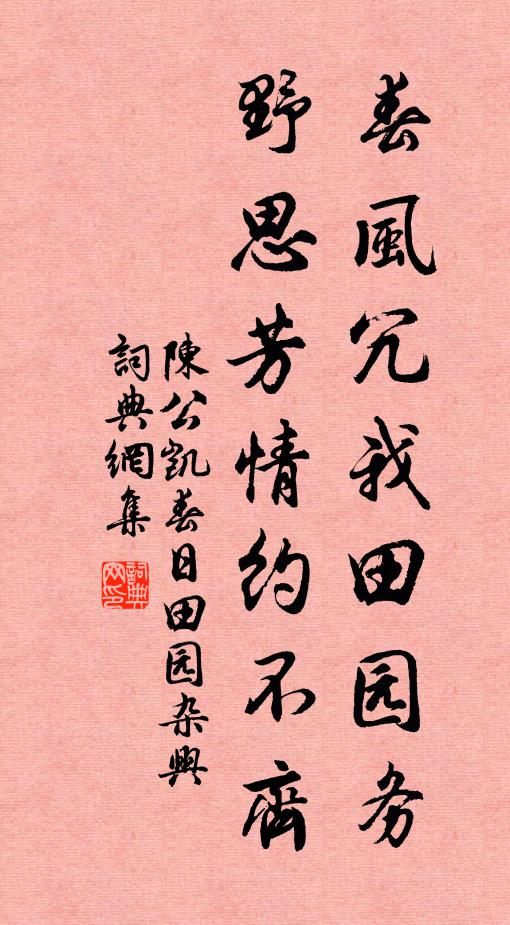 春風冗我田园务
野思芳情約不齊
陳公凱春日田园杂興
詞典網集
詞典网印